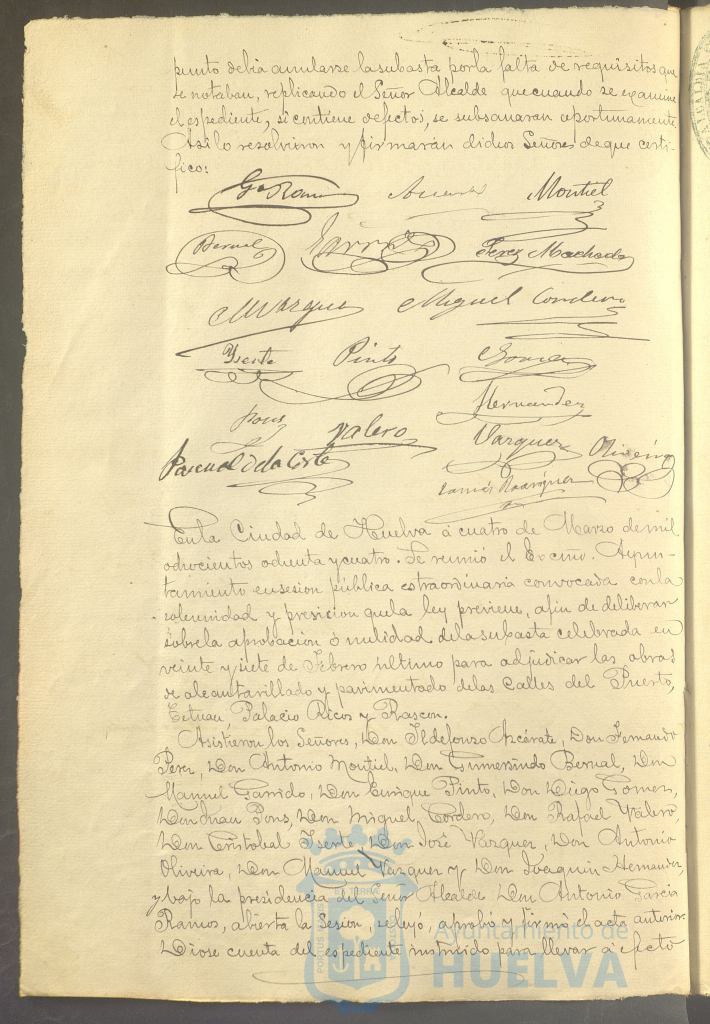 punto debia anularse la subasta por la falta de requisitos que
se notaban, replicando el Señor Alcalde que cuando se examine
el espediente, si contiene defectos, se subsanaran oportunamente.
Asi lo resolvieron y firmarán dichos Señores de que certi-
fico:
Gª Ramos Montiel
Bernal Garrido Perez Machado
M Vazquez Miguel Cordero
Yserte Pinto Gomez
Hernandez
Pons Valero Vazquez Oliveira
Pascual de la Corte Rodriguez
En la Ciudad de Huelva á cuatro de Marzo de mil
ochocientos ochenta y cuatro. Se reunió el Excmo. Ayun-
tamiento en sesion pública estraordinaria convocada con la
solemnidad y presicion que la ley previene, afin de deliberar
sobre la aprobación ó nulidad de la subasta celebrada en
veinte y siete de Febrero último para adjudicar las obras
de alcantarillado y pavimentado de las Calles del Puerto,
Tetuan, Palacio Ricos y Rascon.
Asistieron los Señores, Don Ildefonso Azcárate, Don Fernando
Perez, Don Antonio Montiel, Don Gumersindo Bernal, Don
Manuel Garrido, Don Enrique Pinto, Don Diego Gomez,
Don Juan Pons, Don Miguel Cordero, Don Rafael Valero,
Don Cristobal Iserte, Don José Vazquez, Don Antonio
Oliveira, Don Manuel Vazquez y Don Joaquin Hernandez,
y bajo la presidencia del Señor Alcalde Don Antonio Garcia
Ramos, abierta la Sesion, se leyó, aprobó y firmó el acta anterior.
Diose cuenta del espediente instruido para llevar á efecto
Ayuntamiento de
HUELVA